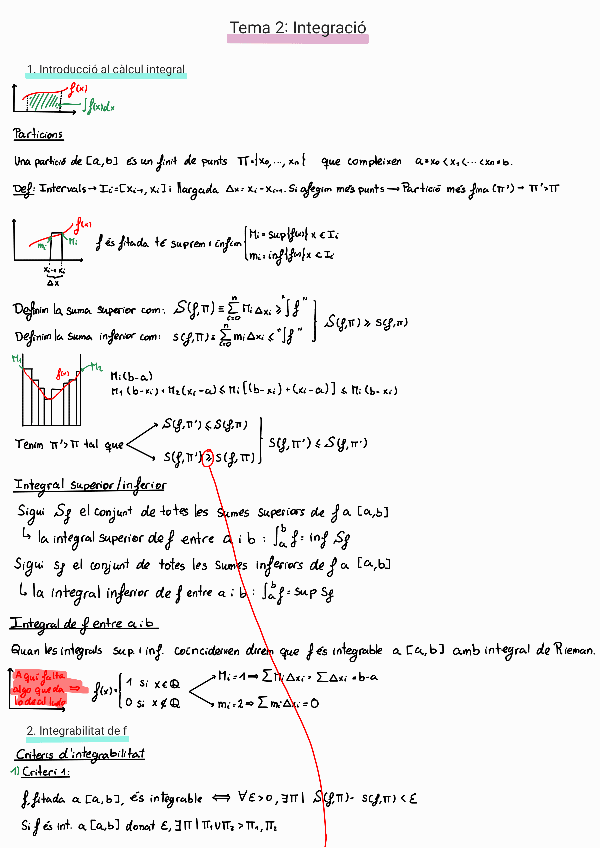 Tema 2: Integració
1. Introducció al càlcul integral
f(x)
∫f(x)dx
Particions
Una partició de [a,b] és un finit de punts Π={x₀,...,xₙ} que compleixen a=x₀<x₁<...<xₙ=b.
Def: Intervals → Iᵢ=[xᵢ₋₁, xᵢ] i llargada Δx=xᵢ-xᵢ₋₁. Si afegim més punts → Partició més fina (Π') → Π'>Π
f(x)
mᵢ Mᵢ
xᵢ₋₁ xᵢ
Δx
f és fitada té suprem i ínfim { Mᵢ=sup{f(x)} x∈Iᵢ
mᵢ=inf{f(x)} x∈Iᵢ
Definim la suma superior com: S(f,Π)=∑ⁿᵢ₌₀ MᵢΔxᵢ ≥ "∫f"
Definim la suma inferior com: s(f,Π)=∑ⁿᵢ₌₀ mᵢΔxᵢ ≤ "∫f" } S(f,Π) ≥ s(f,Π)
M₁ f(x) M₂
Mᵢ(b-a)
M₁(b-xᵢ)+M₂(xᵢ-a) ≤ Mᵢ[(b-xᵢ)+(xᵢ-a)] ≤ Mᵢ(b-xᵢ)
S(f,Π') ≤ S(f,Π)
Tenim Π'>Π tal que
s(f,Π') ≥ s(f,Π) } s(f,Π') ≤ S(f,Π')
Integral superior/inferior
Sigui Sf el conjunt de totes les sumes superiors de f a [a,b]
↳ la integral superior de f entre a i b: ∫ₐᵇ f = inf Sf
Sigui sf el conjunt de totes les sumes inferiors de f a [a,b]
↳ la integral inferior de f entre a i b: ∫ₐᵇ f = sup sf
Integral de f entre a i b
Quan les integrals sup i inf. coincideixen direm que f és integrable a [a,b] amb integral de Rieman.
Aqui falta
algo que da
lo de al lado
⇒ f(x)= { 1 si x∈ℚ
0 si x∉ℚ
Mᵢ=1 ⇒ ∑MᵢΔxᵢ = ∑Δxᵢ = b-a
mᵢ=2 ⇒ ∑mᵢΔxᵢ = 0
2. Integrabilitat de f
Criteris d'integrabilitat
1) Criteri 1:
f fitada a [a,b], és integrable ⟺ ∀ε>0, ∃Π | S(f,Π) - s(f,Π) < ε
Si f és int. a [a,b] donat ε, ∃Π | Π₁∪Π₂ > Π₁, Π₂